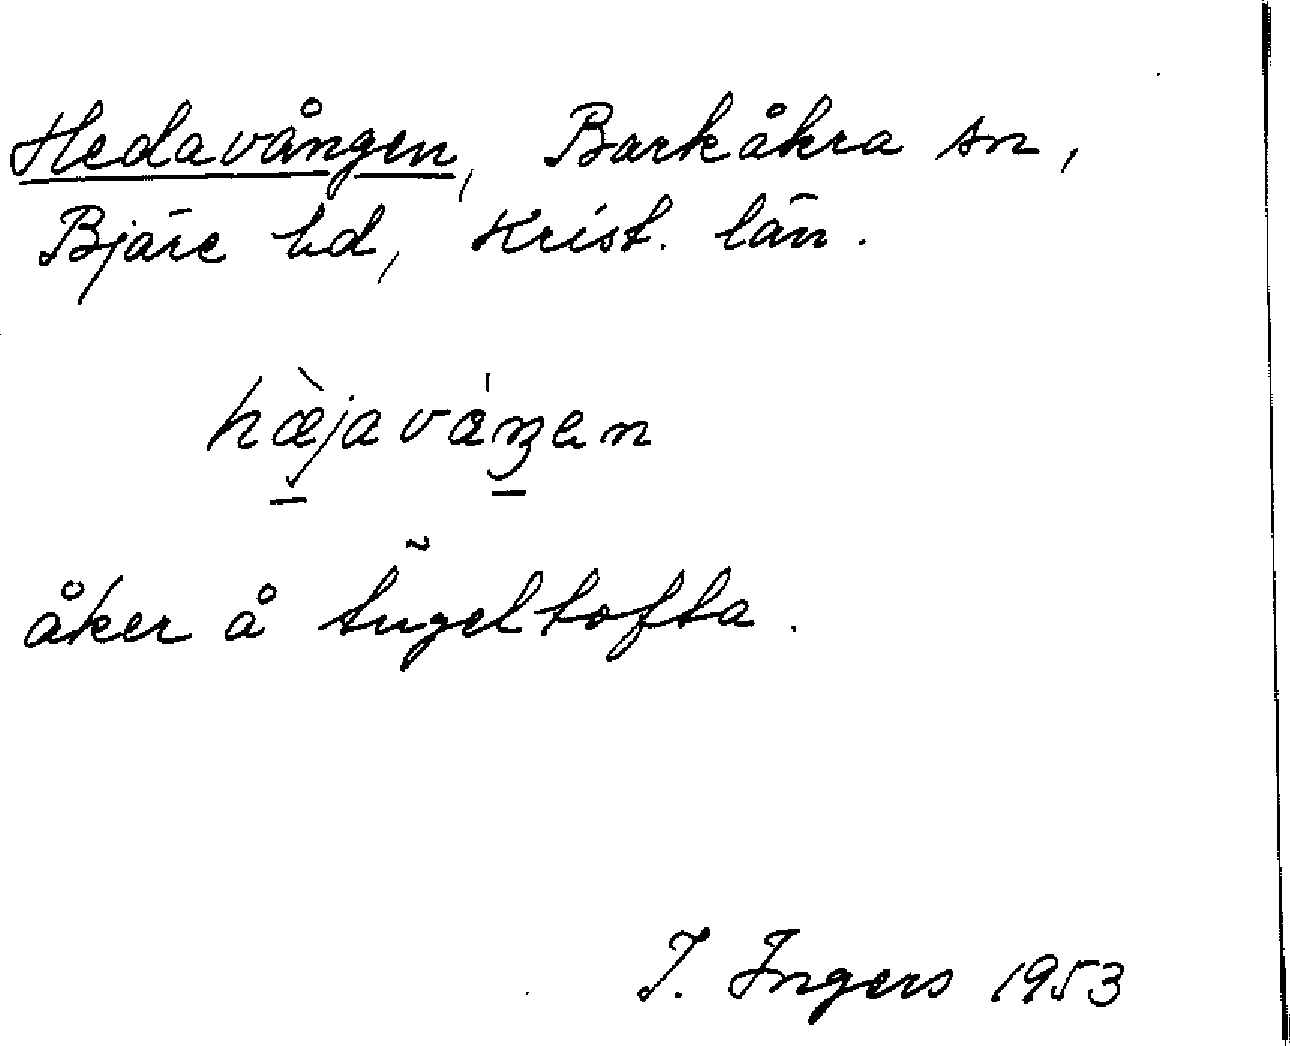 Hedavången, Barkåkra sn,
Bjäre hd, Krist. län.
hæ̀javáŋen
åker å tũgeltofta.
I. Ingers 1953